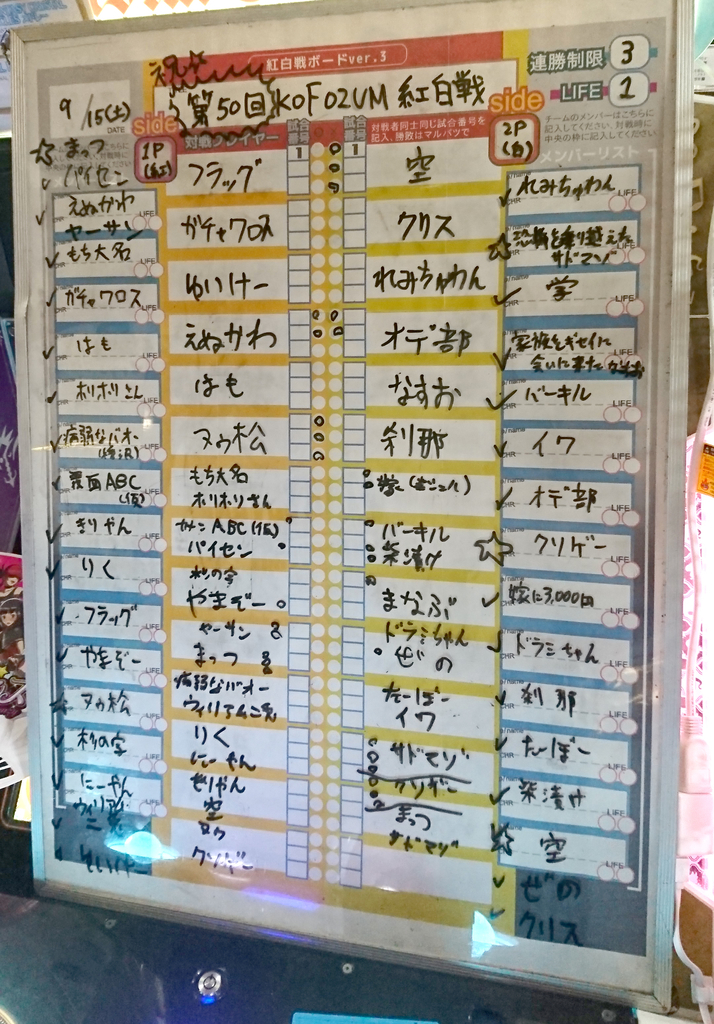 紅白戦ボードver.3
祝
第50回KOF02UM紅白戦
連勝制限 3
LIFE 1
9/15(土)
DATE
side
1P
対戦プレイヤー
試合番号
試合番号
対戦者同士同じ試合番号を
記入、勝敗はマルバツで
side
2P
(白)
チームのメンバーはこちらに
記入してください。対戦時に
中央の枠に記入してください
メンバーリスト
まっつ
パイセン
えぬかわ
ヤーサン
もち大名
ガチャクロス
はも
ホリホリさん
病弱なバオー
覆面ABC
(仮)
きりやん
りく
フラッグ
やまぞー
ヌゥ松
杉の字
にーやん
フラッグ
ガチャクロス
ゆいけー
えぬかわ
はも
ヌゥ松
もち大名
ホリホリさん
パイセン
杉の字
やまぞー
ヤーサン
まっつ
病弱なバオー
りく
にーやん
空
1
1
空
クリス
れみちゅわん
オデ部
なすお
刹那
バーキル
柴漬け
まなぶ
ドラミちゃん
ぜの
たーぼー
イワ
サドマゾ
クソゲー
まっつ
サドマゾ
れみちゅわん
恐怖を乗り越えた
サドマゾ
学
家族をギセイに
会いに来た
バーキル
イワ
オデ部
クソゲー
嫁に3,000円
ドラミちゃん
刹那
たーぼー
柴漬け
空
ぜの
クリス